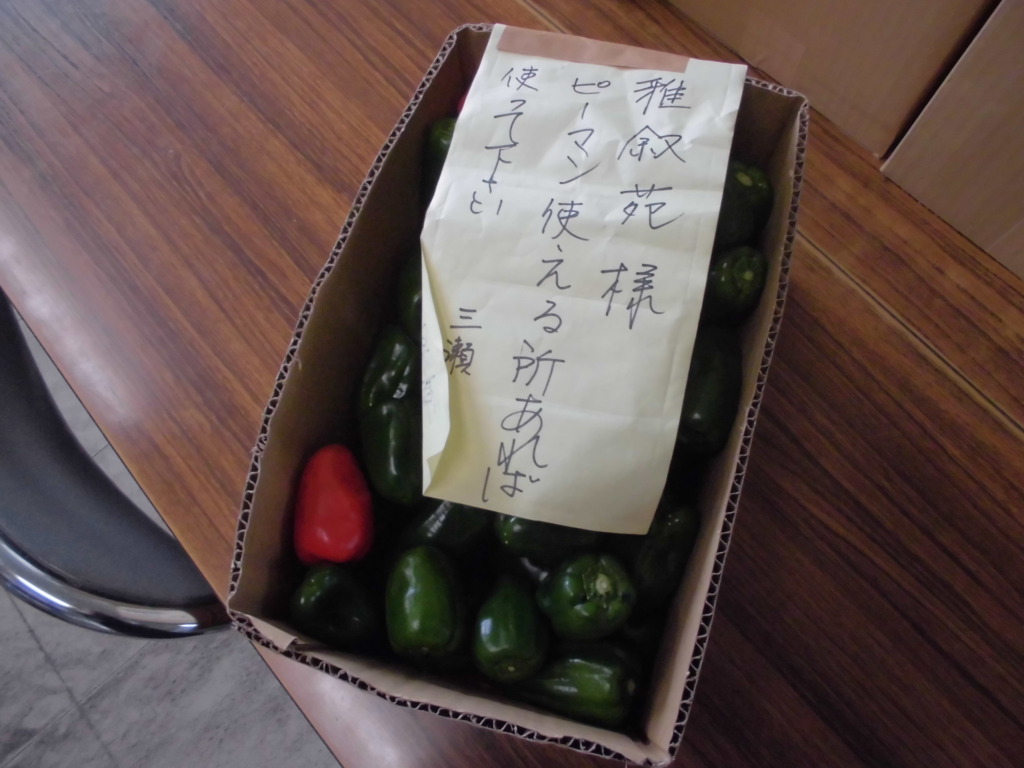 雅叙苑様
ピーマン使える所あれば
使って下さい
三瀬